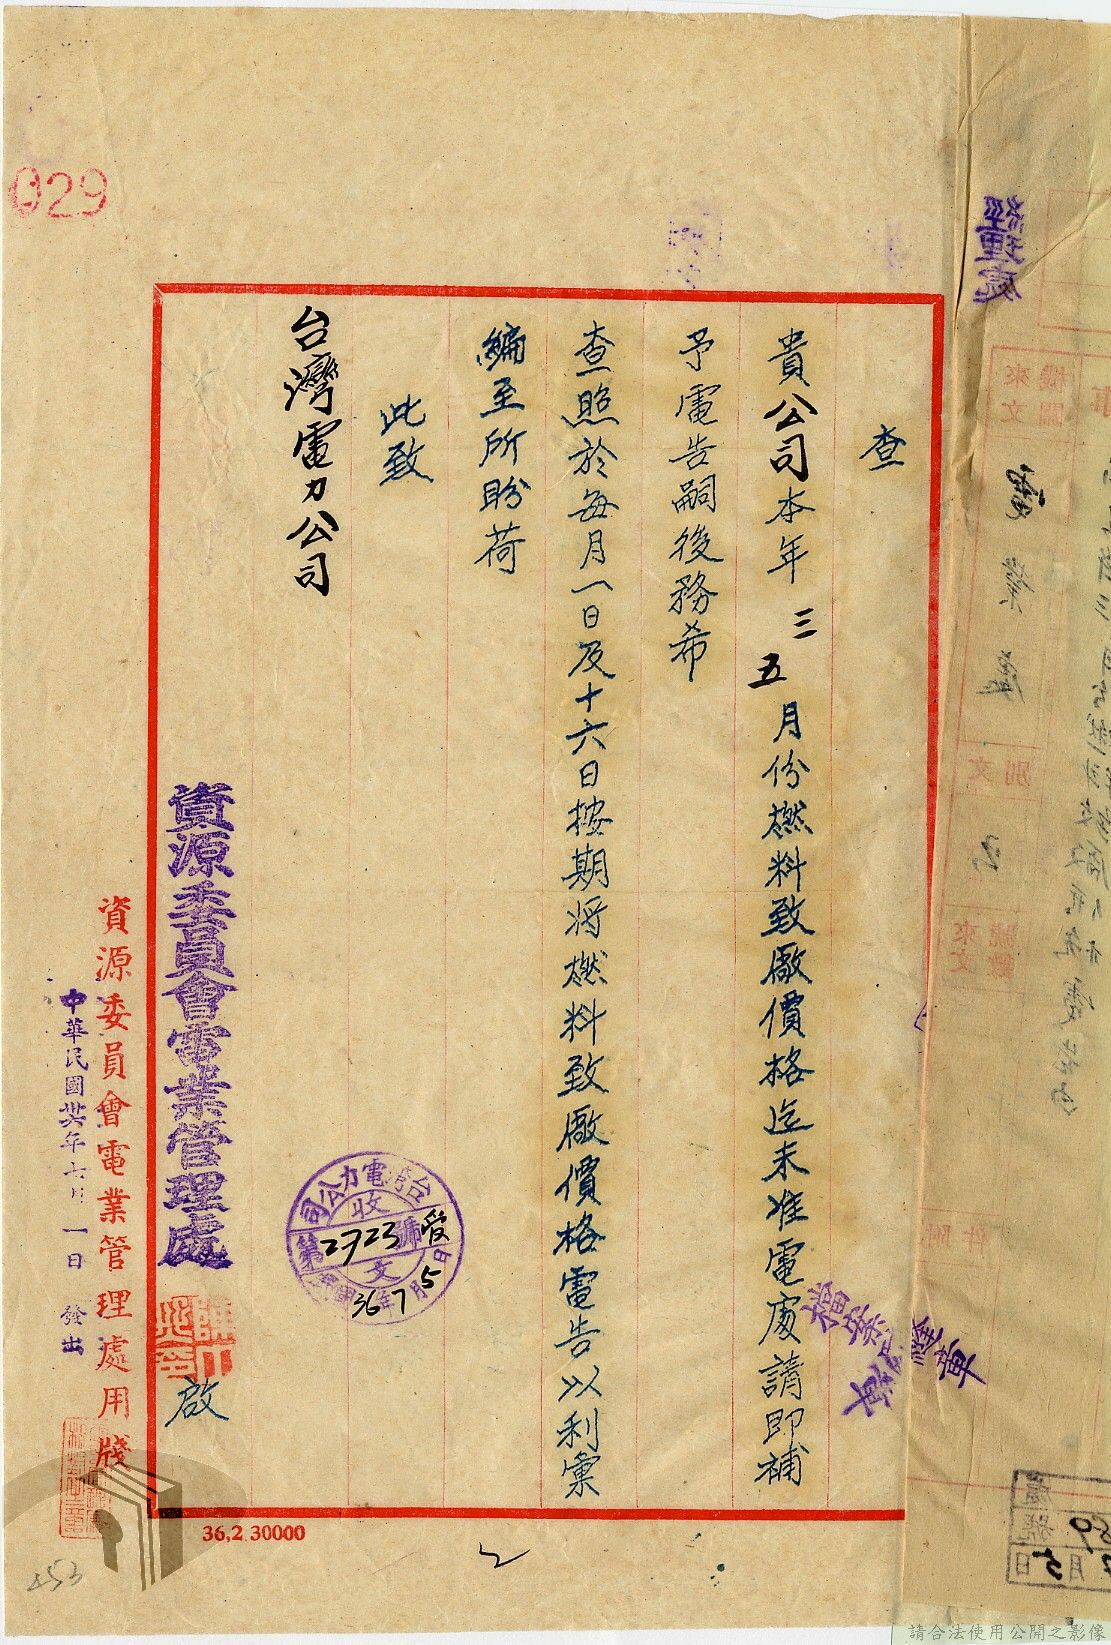 經理處
查
貴公司本年三五月份燃料致廠價格迄未准電處請即補
予電告嗣後務希
查照於每月一日及十六日按期將燃料致廠價格電告以利彙
編至所盼荷
此致
台灣電力公司
資源委員會電業管理處
啟
資源委員會電業管理處用牋
中華民國卅六年七月一日發出
台灣電力公司
收文
第2723號
36年7月5日
受
檔案
029
36,2.30000
453
請合法使用公開之影像